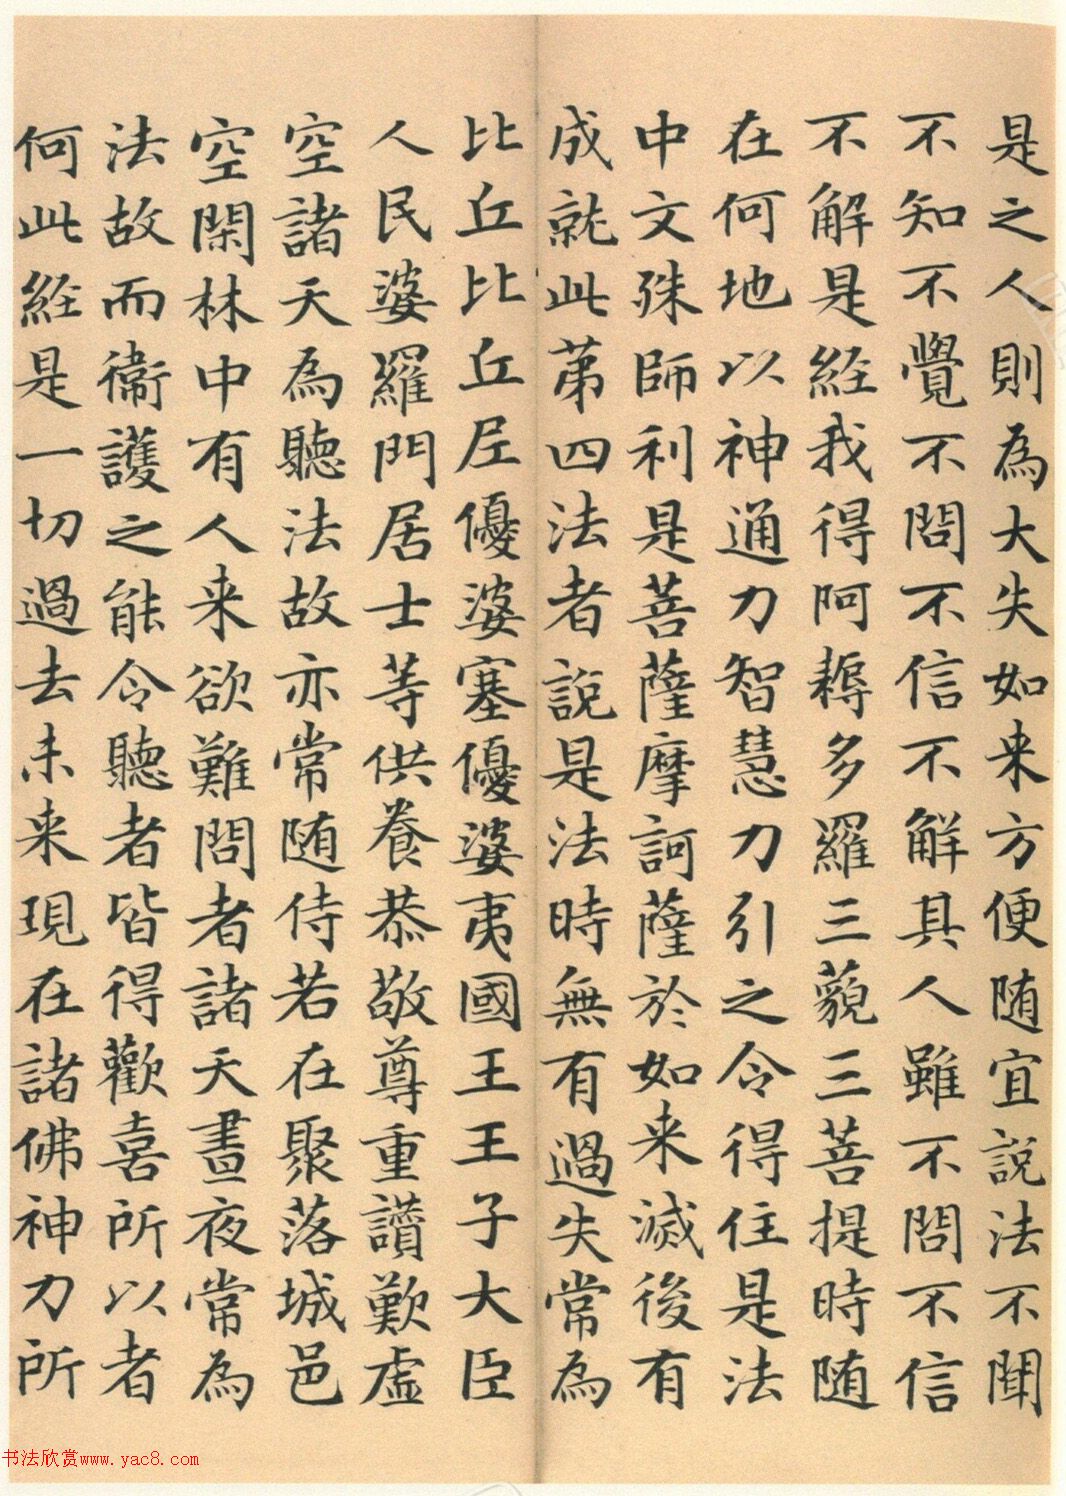 是之人則為大失如来方便随宜說法不聞
不知不覺不問不信不解其人雖不問不信
不解是経我得阿耨多羅三藐三菩提時随
在何地以神通力智慧力引之令得住是法
中文殊師利是菩薩摩訶薩於如来滅後有
成就此第四法者說是法時無有過失常為
比丘比丘尼優婆塞優婆夷國王王子大臣
人民婆羅門居士等供養恭敬尊重讚歎虛
空諸天為聽法故亦常随侍若在聚落城邑
空閑林中有人来欲難問者諸天晝夜常為
法故而衞護之能令聽者皆得歡喜所以者
何此経是一切過去未来現在諸佛神力所
书法欣赏www.yac8.com